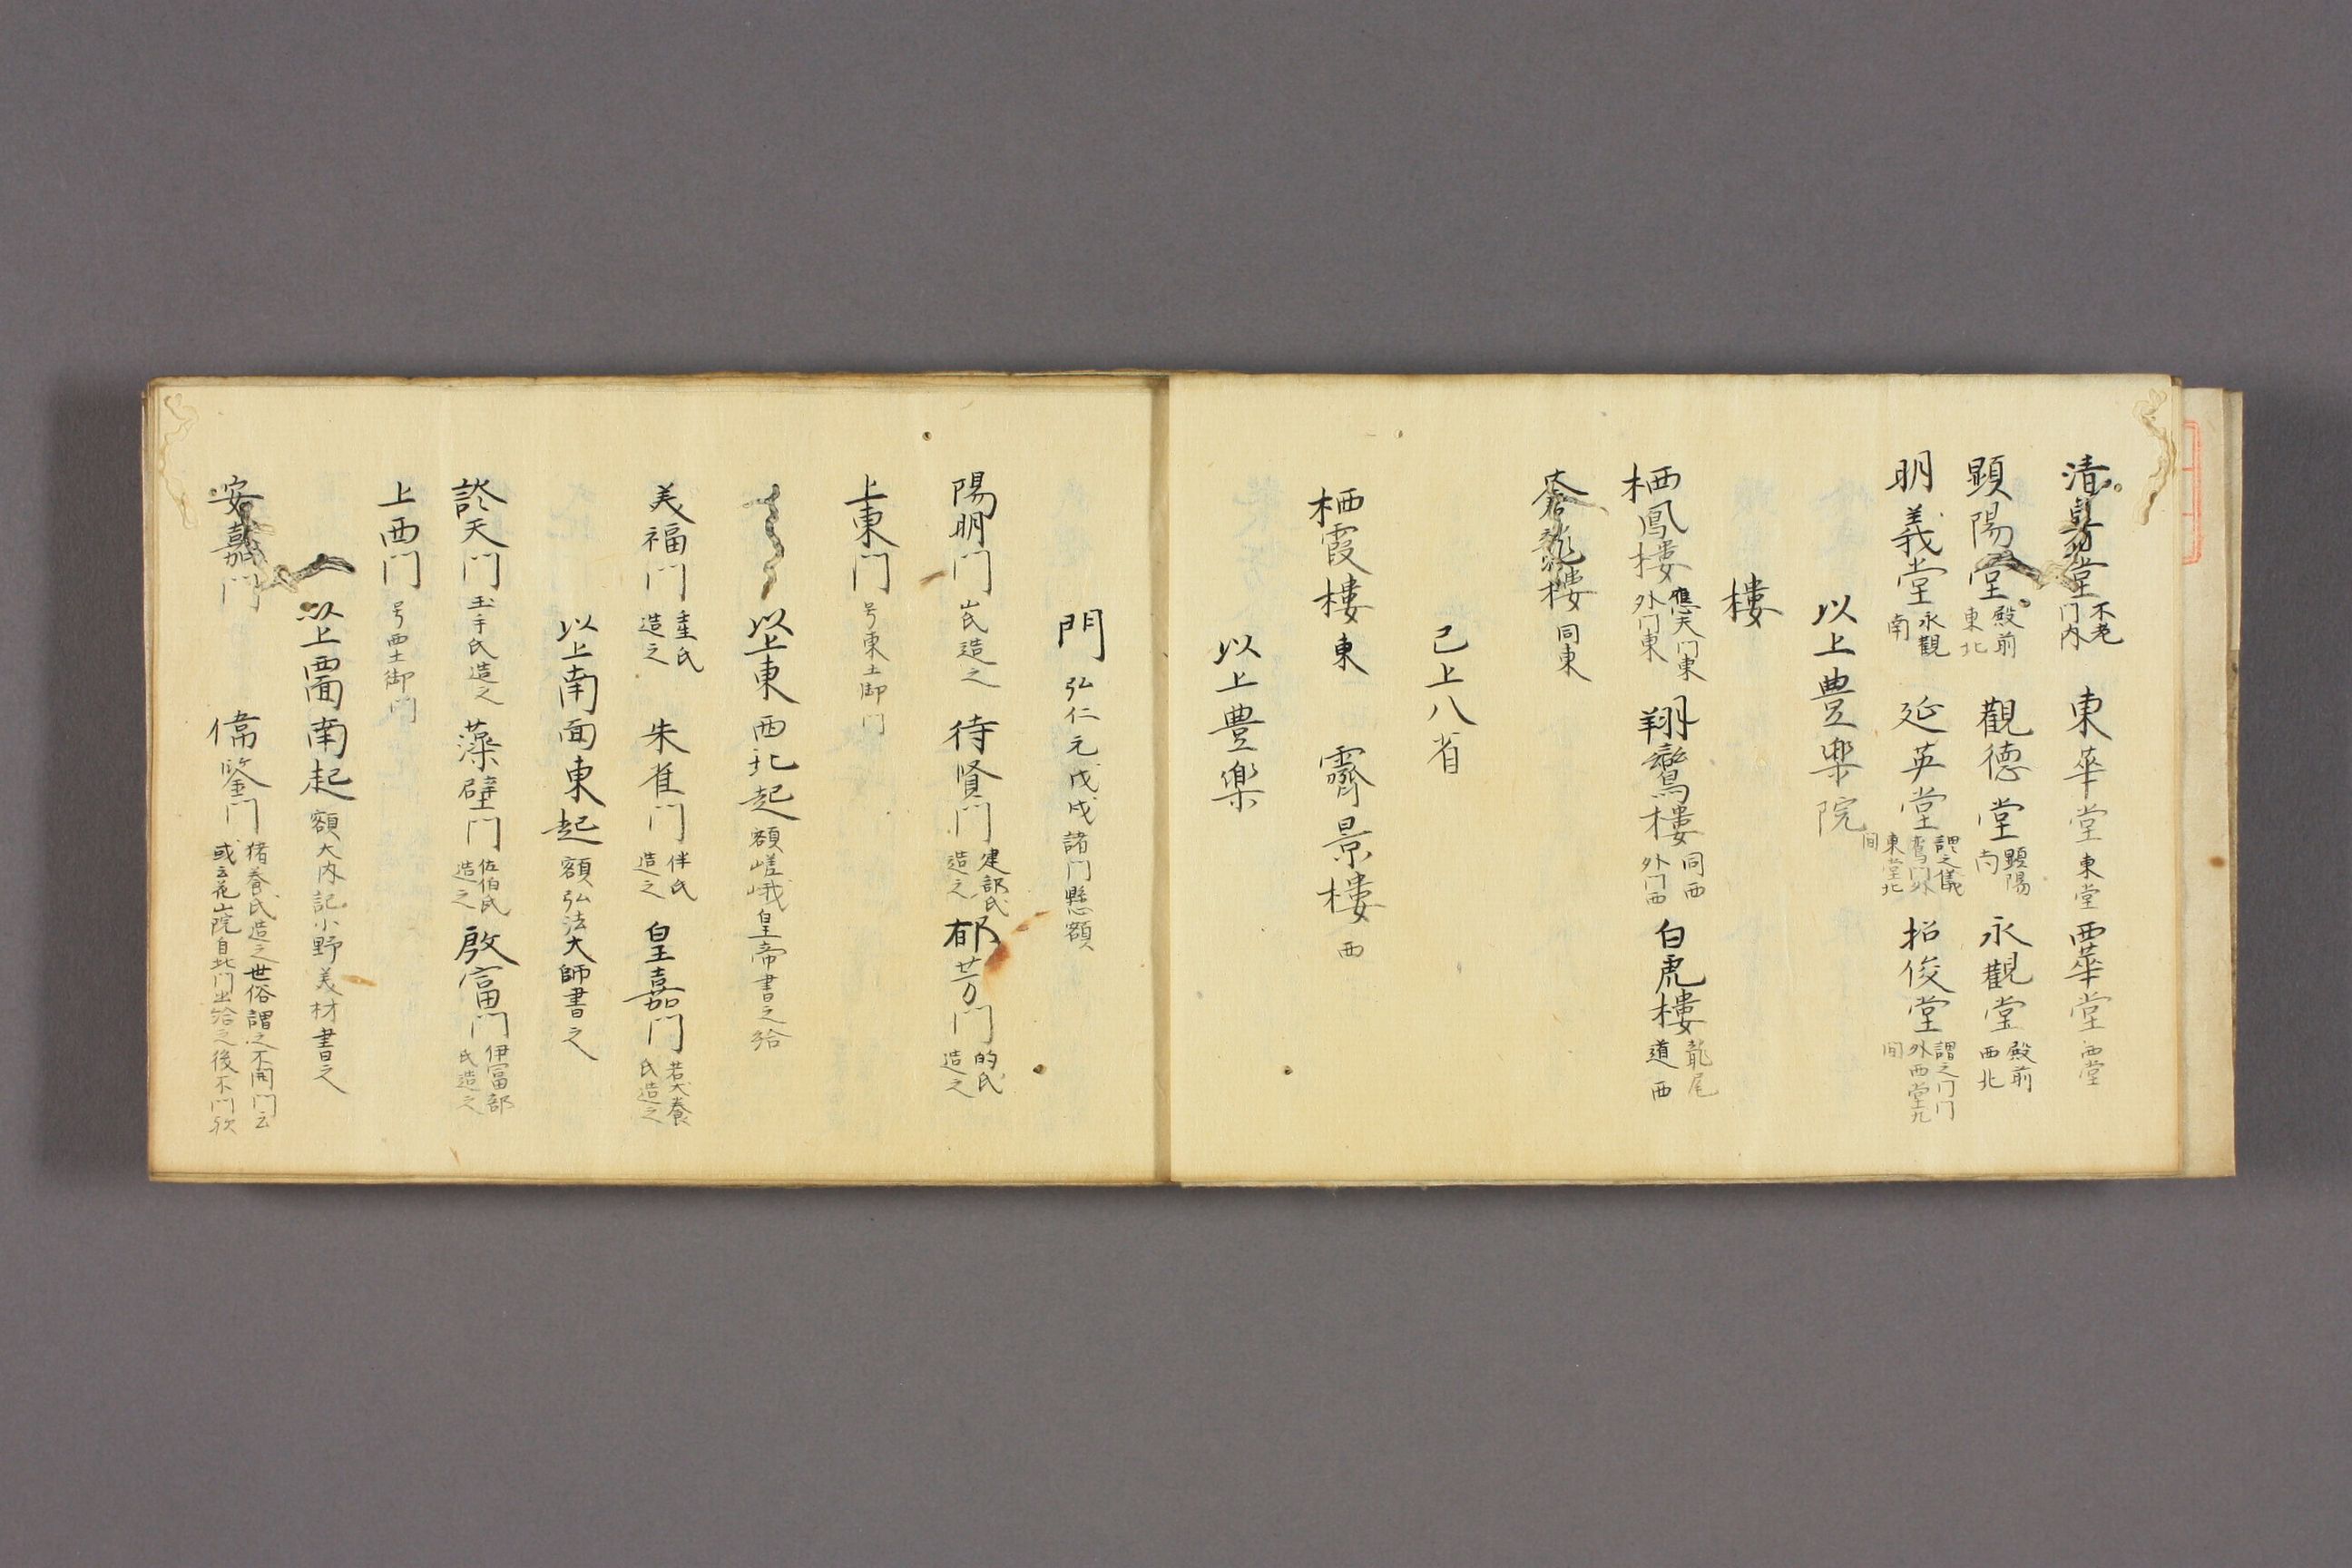 清暑堂 不老門内 東華堂 東堂 西華堂 西堂
顕陽堂 殿前東北 觀德堂 顕陽南 永觀堂 殿前西北
明義堂 永觀南 延英堂 謂之儀鸞门外東堂北間 招俊堂 謂之门门外西堂九間
以上豊楽院
樓
栖鳳樓 應天门東外门東 翔鸞樓 同西外门西 白虎樓 龍尾道西
蒼龍樓 同東
已上八省
栖霞樓 東 霽景樓 西
以上豊楽
門 弘仁元戊戌諸门懸額
陽明门 山氏造之 待賢门 建部氏造之 郁芳门 的氏造之
上東门 号東土御门
以上東西北起 額嵯峨皇帝書之給
美福门 壬生氏造之 朱雀门 伴氏造之 皇嘉门 若犬養氏造之
以上南面東起 額弘法大師書之
談天门 玉手氏造之 藻壁门 佐伯氏造之 殷富门 伊冨部氏造之
上西门 号西土御门
以上西面南起 額大内記小野美材書之
安嘉门 偉鑒门 猪養氏造之世俗謂之不開门云或云花山院自北门出給之後不门欤